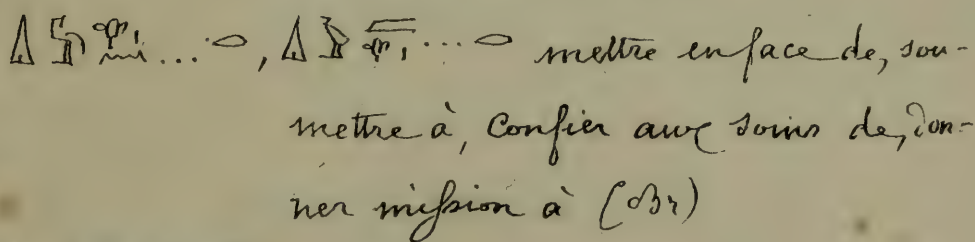 ... , ... mettre en face de, sou-
mettre à, Confier aux soins de, don-
ner mission à (Br)